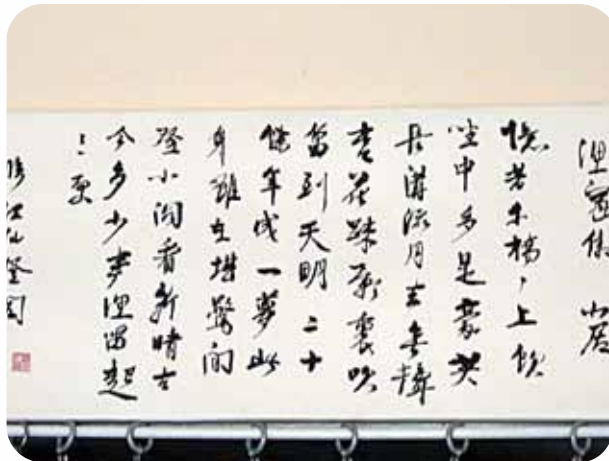 小居
憶昔午橋々上飲
坐中多是豪英
長溝流月去無聲
杏花疎影裏吹
笛到天明二十
餘年成一夢此
身雖在堪驚閒
登小閣看新晴古
今多少事漁唱起
三更
臨江仙登閣